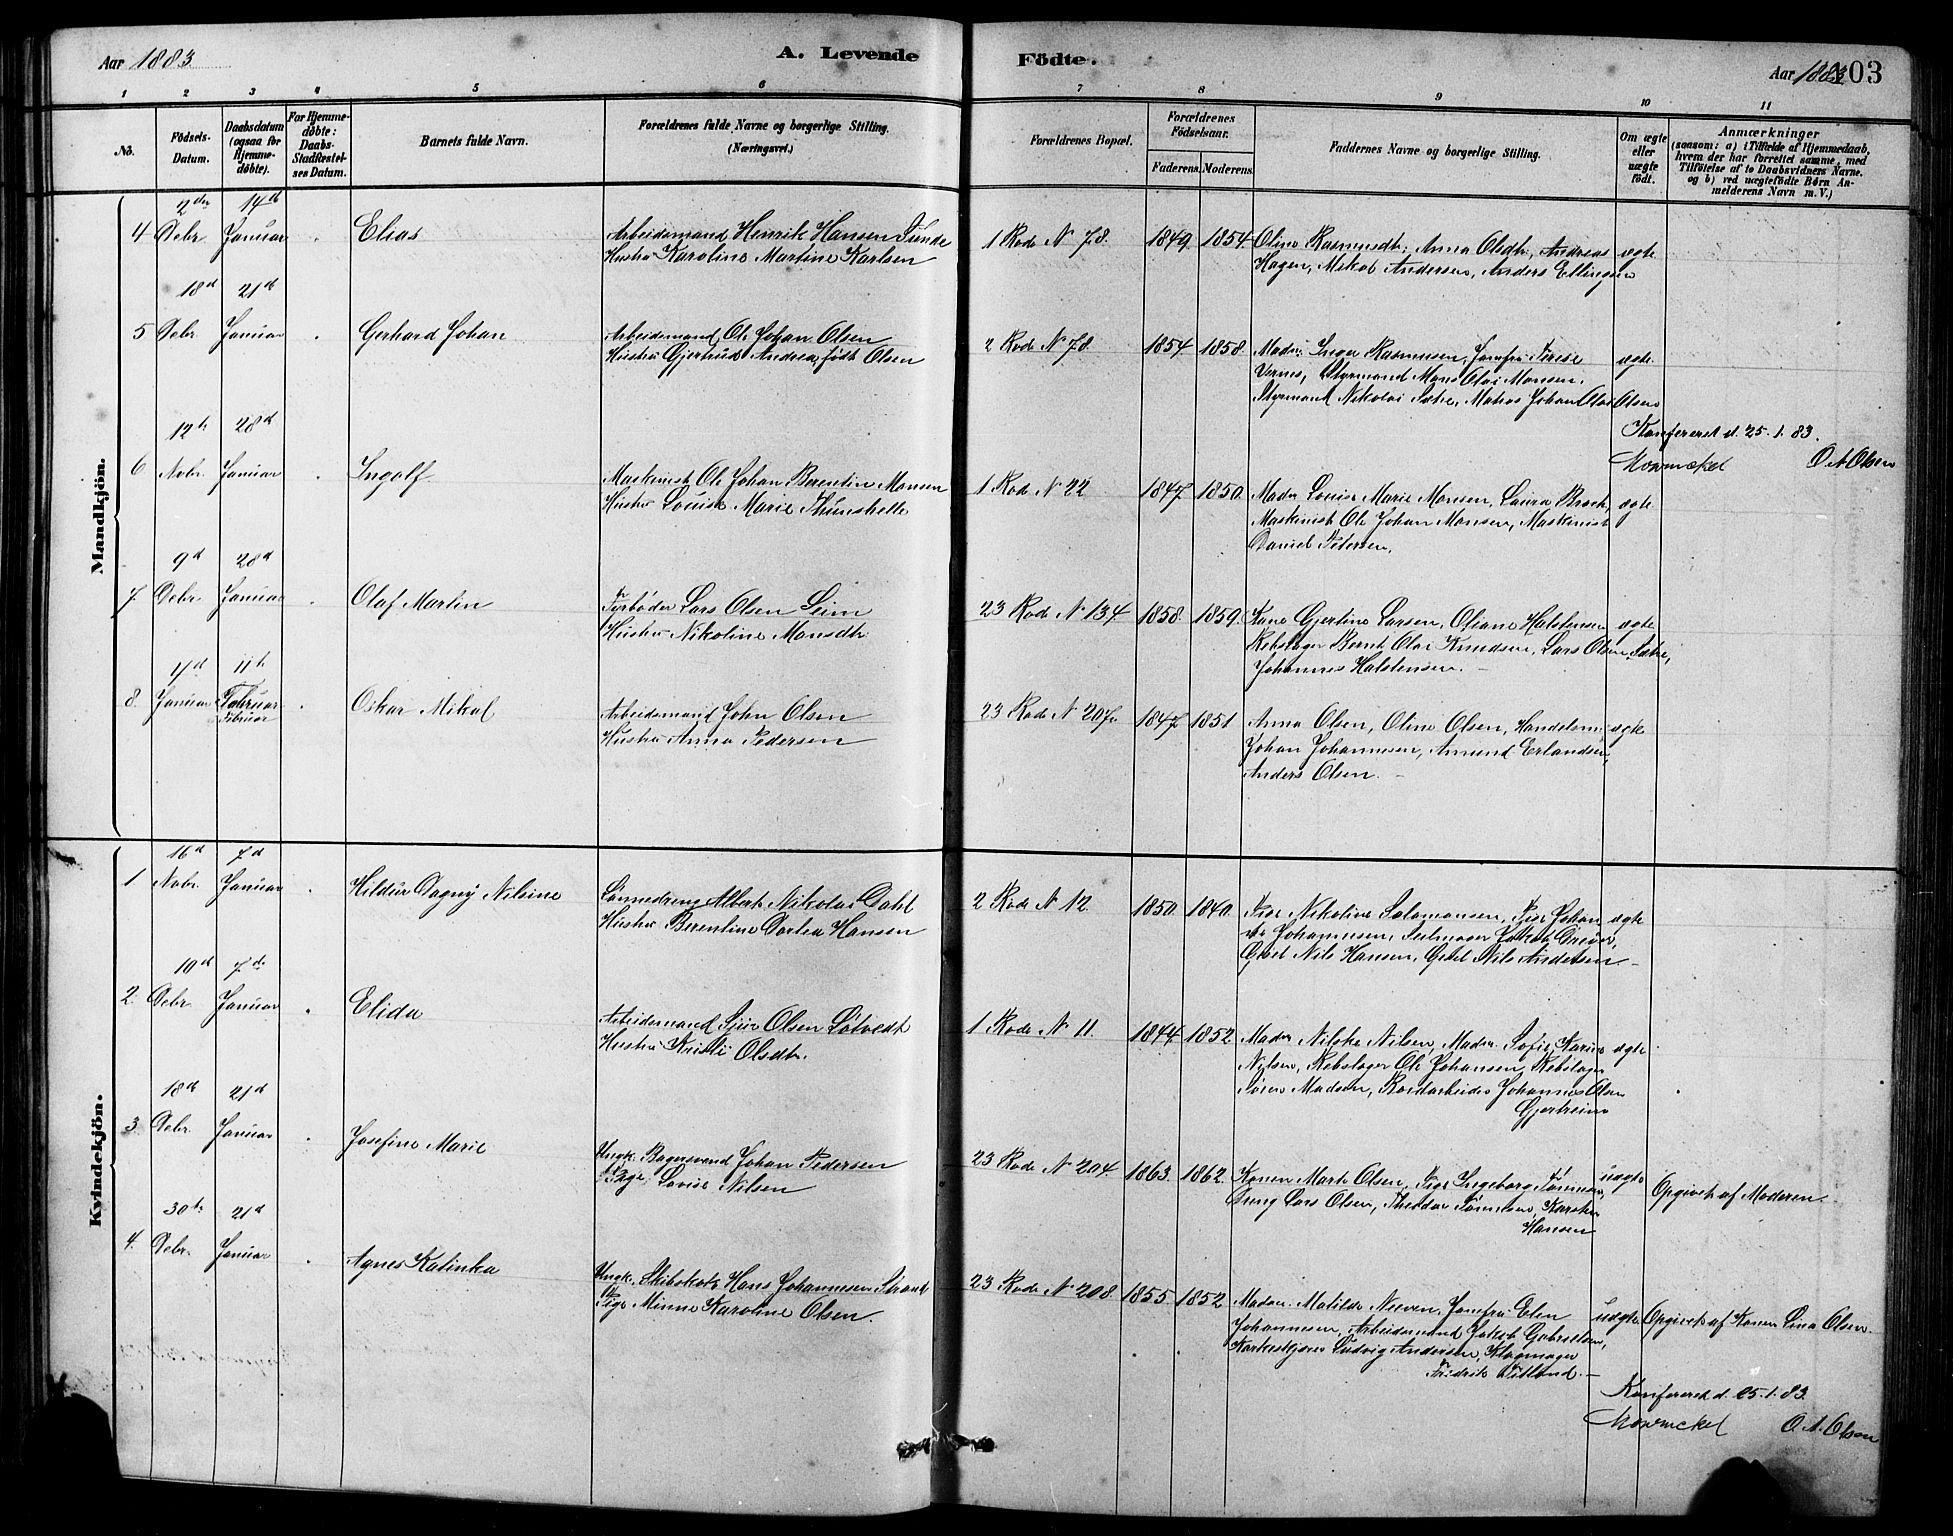 Aar 1883
A. Levende
Födte.
Aar 1883
103
1 2 3 4 5 6 7 8 9 10 11
No.
Födsels-
Datum.
Daabsdatum
(ogsaa for
Hjemme-
døbte).
For Hjemme-
døbte:
Daabs-
Stadfæstel-
ses Datum.
Barnets fulde Navn.
Forældrenes fulde Navne og borgerlige Stilling.
(Næringsvei.)
Forældrenes Bopæl.
Forældrenes
Födselsaar.
Faderens. Moderens.
Faddernes Navne og borgerlige Stilling.
Om ægte
eller
uægte
født.
Anmærkninger
(saasom: a) i Tilfælde af Hjemmedaab,
hvem der har forrettet samme, med
Tilføielse af to Daabsvidners Navne.
og b) ved uægtefødte Børn An-
melderens Navn m. V.)
Mandkjön.
2den 14d
4 Debr. Januar Elias
Arbeidsmand Henrik Hansen Sunde
Hustru Karoline Martine Karlsen
1 Rode N 78. 1849. 1854.
Oline Rasmusdt., Anna Olsdtr., Andreas
Hagen, Mikal Andersen, Anders Ellingsen
ægte
18d 21d
5 Debr. Januar Gerhard Johan
Arbeidsmand Ole Johan Olsen
Hustru Gjertrud Andrea, født Olsen
2 Rode N 78. 1854. 1858.
Madm. Inger Rasmussen, Jomfru Terese
Vernes, Styrmand Mons Olai Monsen,
Styrmand Nikolai Sætre, Matros Johan Olai Olsen
ægte.
Konfereret d. 25.1.83.
Mowinckel O A Olsen
12te 28d
6 Nobr. Januar Ingolf
Maskinist Ole Johan Berentin Monsen
Hustru Louise Marie Thunshelle
1 Rode N 22 1847. 1850.
Madm Louise Marie Monsen, Laura Broch,
Maskinist Ole Johan Monsen, Maskinist
Daniel Pedersen.
ægte
9d 28d
7. Debr. Januar Olaf Martin
Fyrbøder Lars Olsen Seim
Hustru Nikoline Monsdtr
23 Rode N 134 1858. 1859.
Kone Gjertine Larsen, Oliane Halstensen
Rebslager Bernt Olai Knudsen, Lars Olsen Sætre,
Johannes Halstensen. —
ægte
11te
8. Januar Februar
Februar
Oskar Mikal
Arbeidsmand John Olsen
Hustru Anna Pedersen
23 Rode N 207. 1847. 1851
Anna Olsen, Oline Olsen, Handelsm.
Johan Johannesen, Amund Erlandsen,
Anders Olsen. —
ægte
Kvindekjön.
16d 7d
1 Nobr. Januar Hildur Dagny Nilsine
Albert Nikolai Dahl
Hustru Berentine Dortea Hansen
2 Rode N 12. 1850. 1840.
Pige Nikoline Salomonsen, Pige Johan
ne Johannesen, Seilmager Jakob Greve,
Gesel Nils Hansen, Gesel Nils Andersen —
ægte
10d 7de
2. Debr. Januar Elida
Arbeidsmand Sjur Olsen Løtvedt
Hustru Kristi Olsdtr.
1 Rode N 11. 1844. 1852
Madm Nilske Nilsen, Madm. Sofie Karine
Nilsen, Rebslager Ole Johansen, Rebslager
Søren Madsen, Jordarbeider Johannes Olsen
Gjertreim
ægte
18d 21d
3. Debr. Januar Josefine Marie
Ungk. Bagersvend Johan Pedersen
Pige Lovise Nilsen
23 Rode N 204. 1863. 1862.
Konen Marte Olsen, Pige Ingeborg Tønnesen,
Dreng Lars Olsen, Theodor Tønnesen, Karsten
Hansen
uægte
Opgivet af Moderen
30te 21d
4. Debr. Januar Agnes Katinka
Ungk. Skibskok Hans Johannesen Strand
Pige Minne Karoline Olsen.
23 Rode N 208. 1855. 1852
Madm. Matilde Neeven, Jomfru Elen
Johannesen, Arbeidsmand Jakob Gabrielsen,
Korkeskjærer Ludvig Andersen, Klogmager
Fredrik Vidland. —
uægte
Opgivet af Konen Lina Olsen.
Konfereret d. 25.1.83
Mowinckel O. A. Olsen